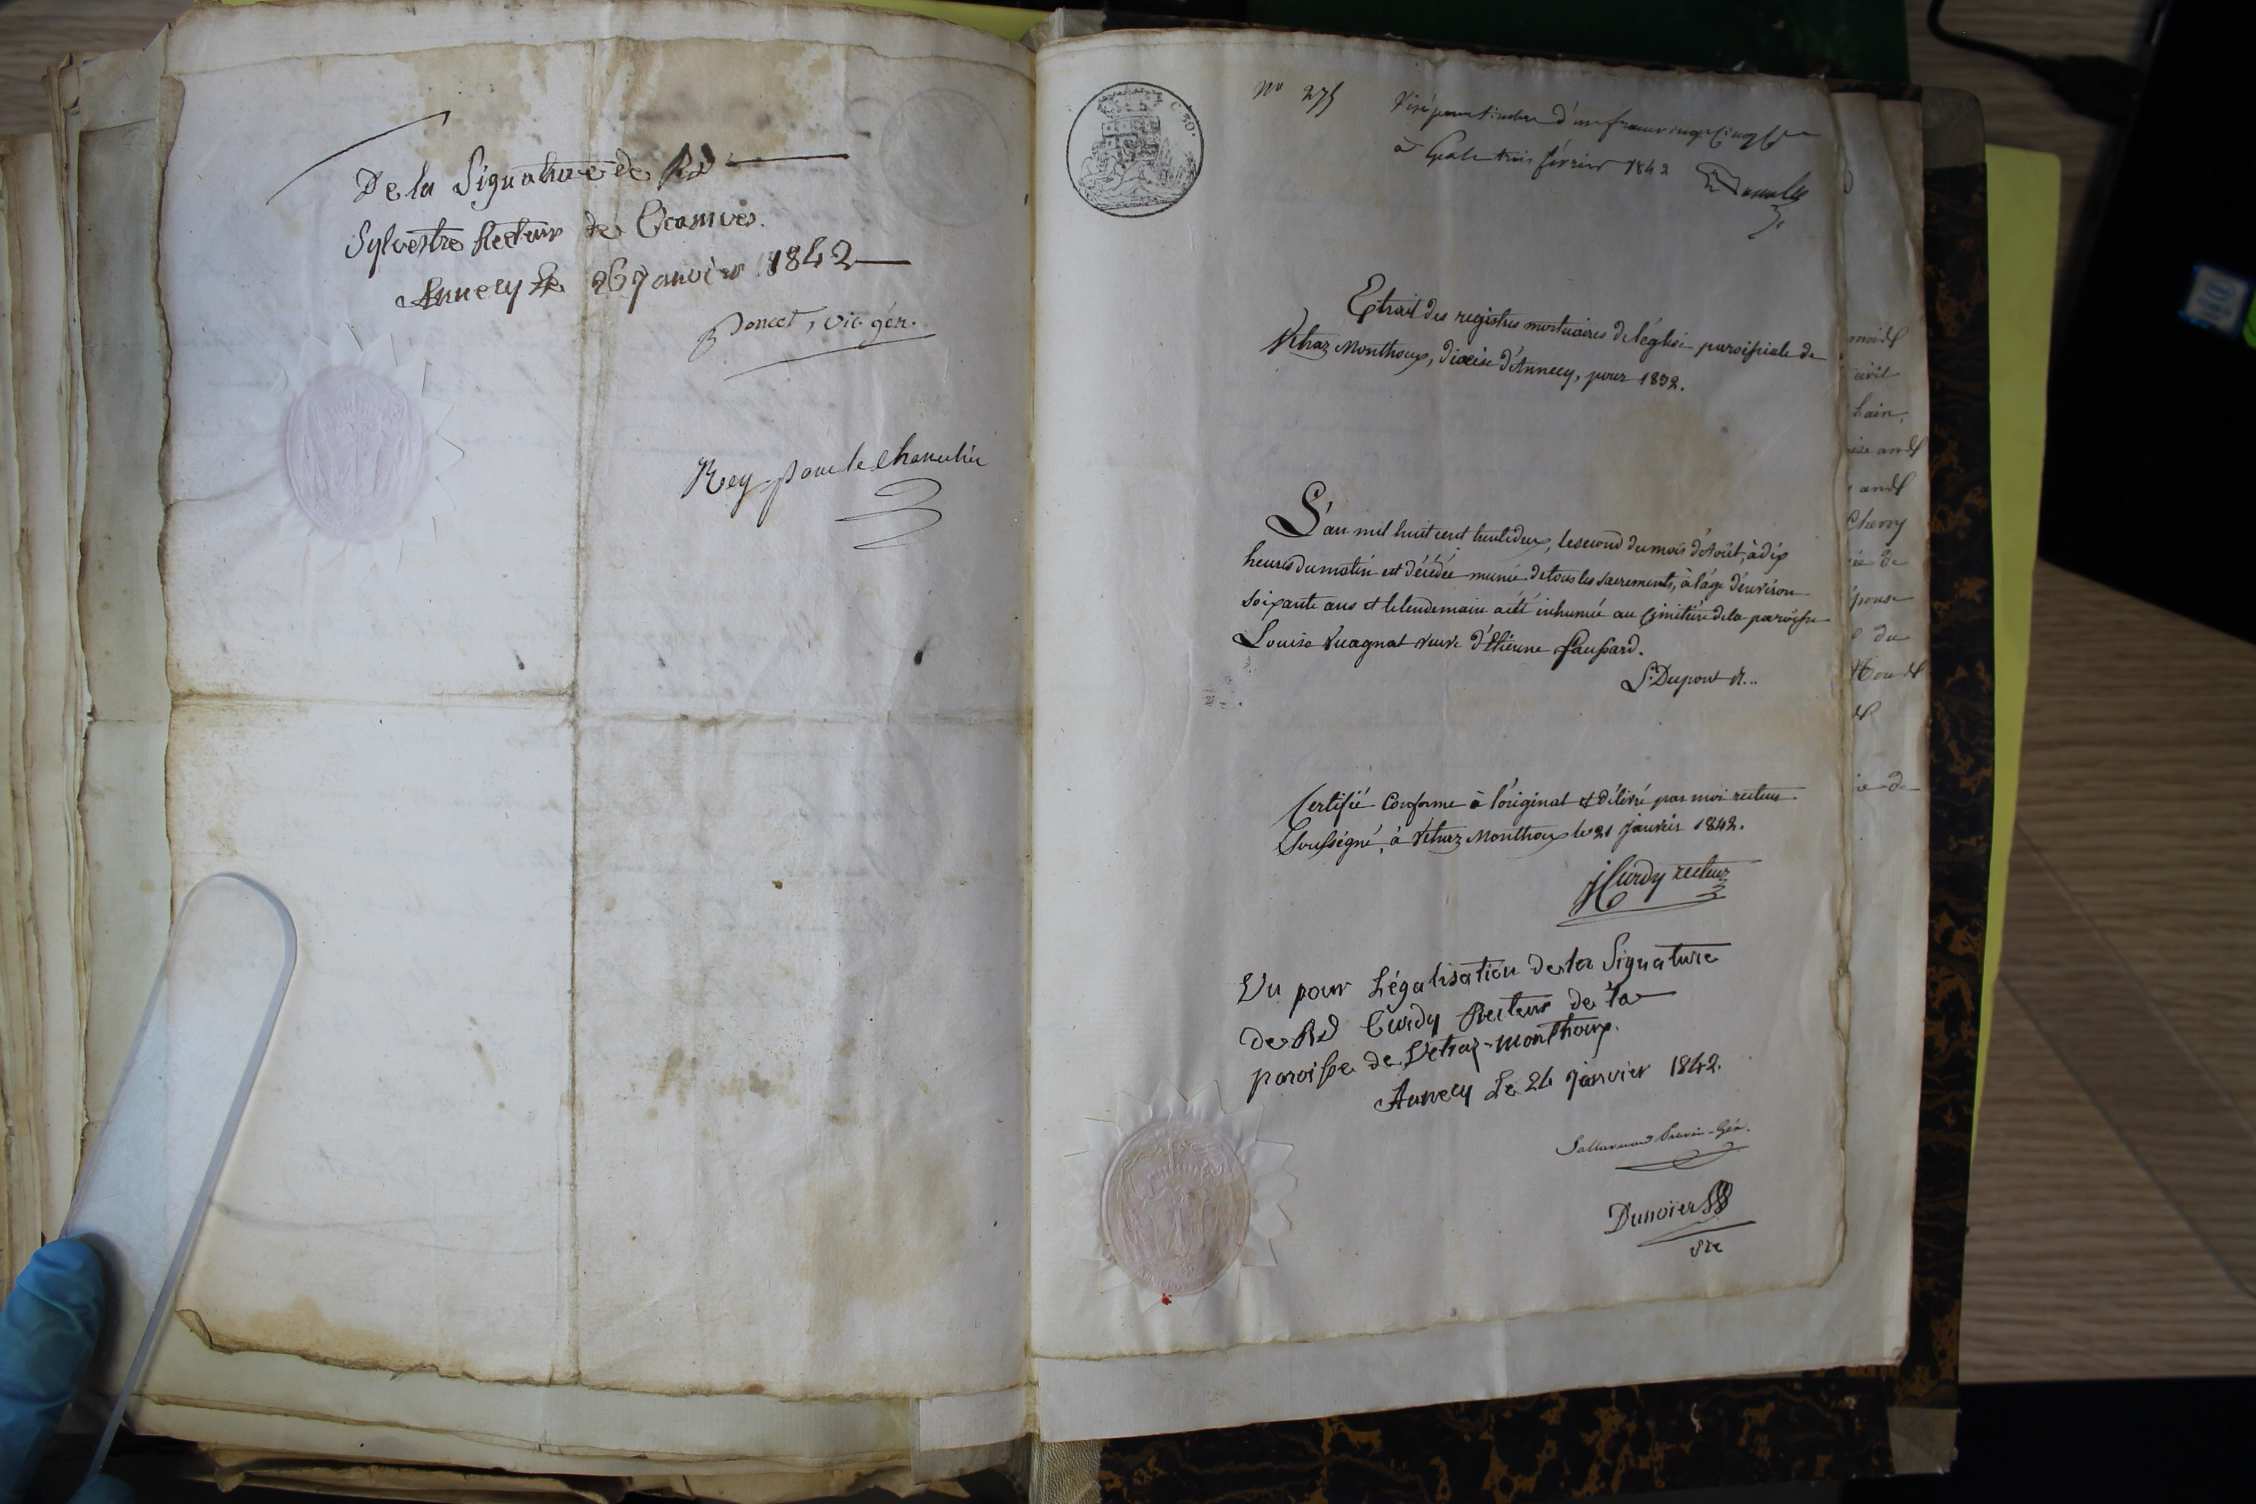 De la Signature de Rd
Sylvestre Recteur de
Annecy le 26 Janvier 1842
Poncet, vic. gén.
Rey pour le chancelier
C. 50.
No 275
Visé pour timbre d'un franc vingt cinq
à trois février 1842
Extrait des registres mortuaires de l'église paroissiale de
Vétraz Monthoux, diocèse d'Annecy, pour 1832.
L'an mil huit cent trente deux, le second du mois d'Août, à dix
heures du matin est décédée munie de tous les sacrements, à l'âge d'environ
soixante ans et le lendemain a été inhumée au cimitière de la paroisse
Louise Vuagnat veuve d'Etienne Saussard.
Sr. Dupont R..
Certifié Conforme à l'original et délivré par moi recteur
Soussigné, à Vétraz Monthoux le 21 janvier 1842.
Curdy recteur
Vu pour Légalisation de la Signature
de Rd Curdy Recteur de la
paroisse de Vetraz-Monthoux.
Annecy Le 24 Janvier 1842.
Dunoier
smids
civil
hain,
ands
Chevy
ée de
épouse
du
de